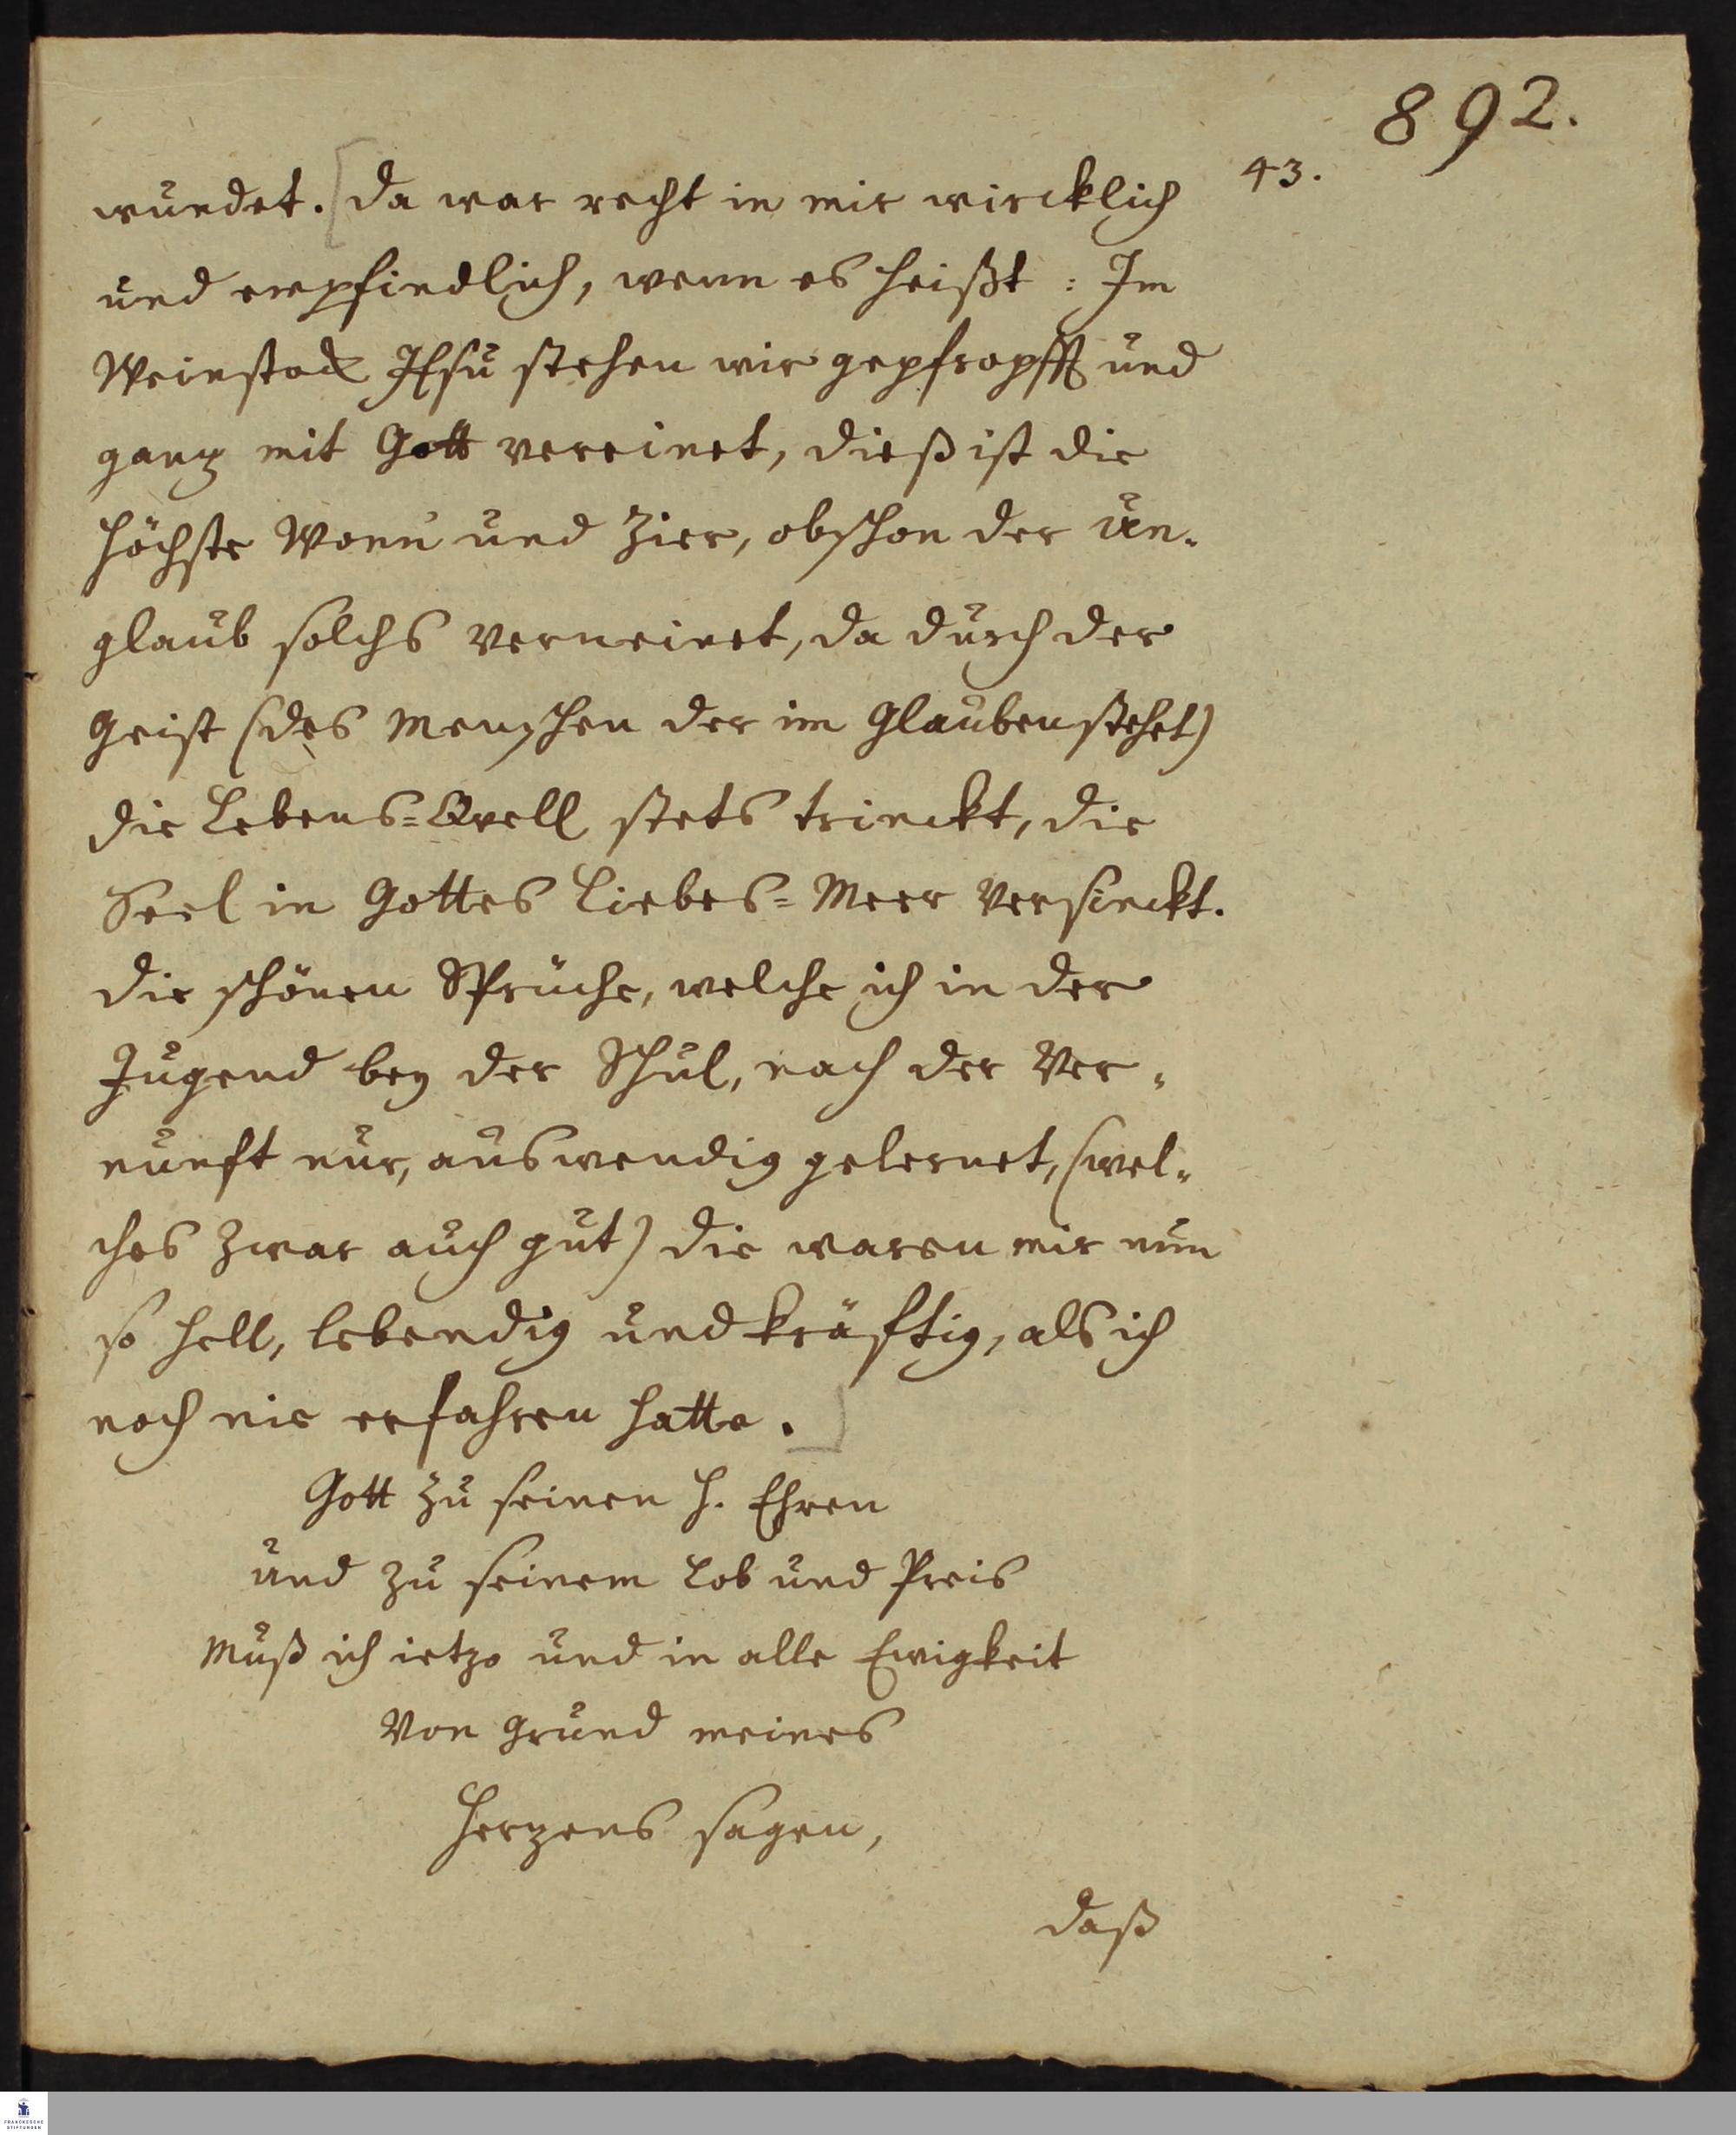 892.
43.
wundet. [Da war recht in mir wircklich
und empfindlich, wenn es heißt: Im
Weinstock JEsu stehen wir gepfropfft und
gantz mit Gott vereinet, dieß ist die
höchste Wonn und Zier, obschon der Un-
glaub solchs verneinet, da durch der
Geist (des Menschen der im Glauben stehet)
die Lebens-Qvell stets trinckt, die
Seel in Gottes Liebes-Meer versinckt.
Die schönen Sprüche, welche ich in der
Jugend bey der Schul, nach der Ver-
nunft nur, auswendig gelernet, (wel-
ches zwar auch gut) die waren mir nun
so hell, lebendig und kräftig, als ich
noch nie erfahren hatte.]
Gott zu seinen H. Ehren
und zu seinem Lob und Preis
Muß ich ietzo und in alle Ewigkeit
Von Grund meines
Hertzens sagen,
daß
FRANCKESCHE
STIFTUNGEN